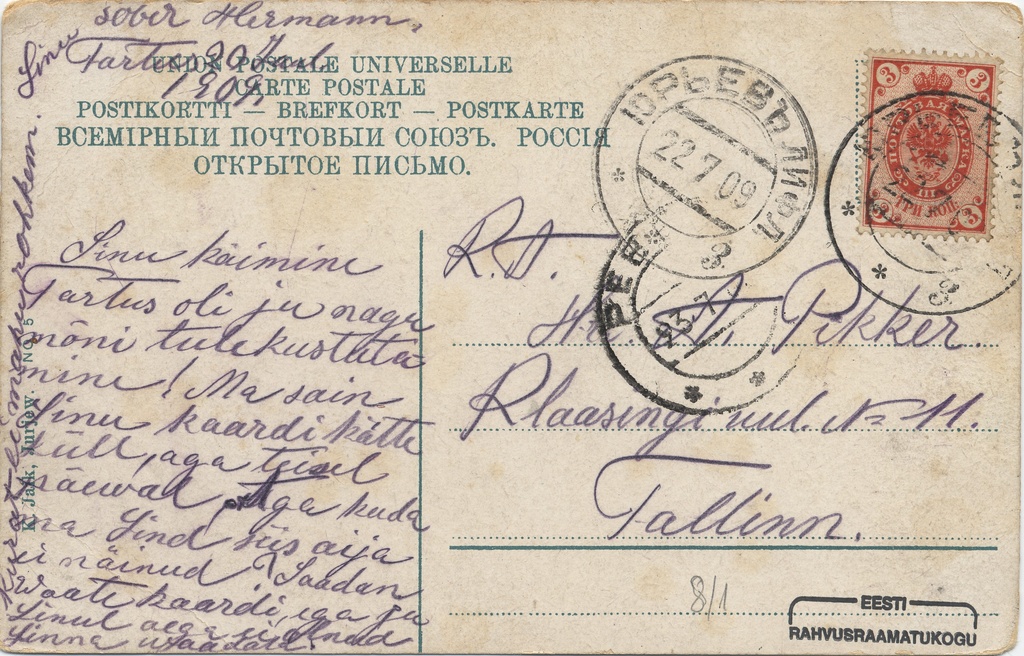 sõber Hermann,
Tartus 20 Jul
1909.
UNION POSTALE UNIVERSELLE
CARTE POSTALE
POSTIKORTTI — BREFKORT — POSTKARTE
ВСЕМІРНЫИ ПОЧТОВЫИ СОЮЗЪ. РОССІЯ
ОТКРЫТОЕ ПИСЬМО.
ЮРЬЕВЪ ЛИФЛ
22 7 09
3
3 3
ТРИ КОП.
3 3
3
РЕВ
23.7
Sinu käimine
Tartus oli ju nagu
mõni tulekustuta-
mine! Ma sain
Sinu kaardi kätte
küll, aga teisel
päewal. Aga kuda
ma Sind siis aija
ei näinud? Saadan
Waate kaardi, ega ju
Sinul aega ei olnud
Linna waadata.
Sinu
K. Jaik, Jurjew. NO 5
R. A.
Hr. A. Pikker.
Klaasingi uul. № 11.
Tallinn.
8/1
EESTI
RAHVUSRAAMATUKOGU